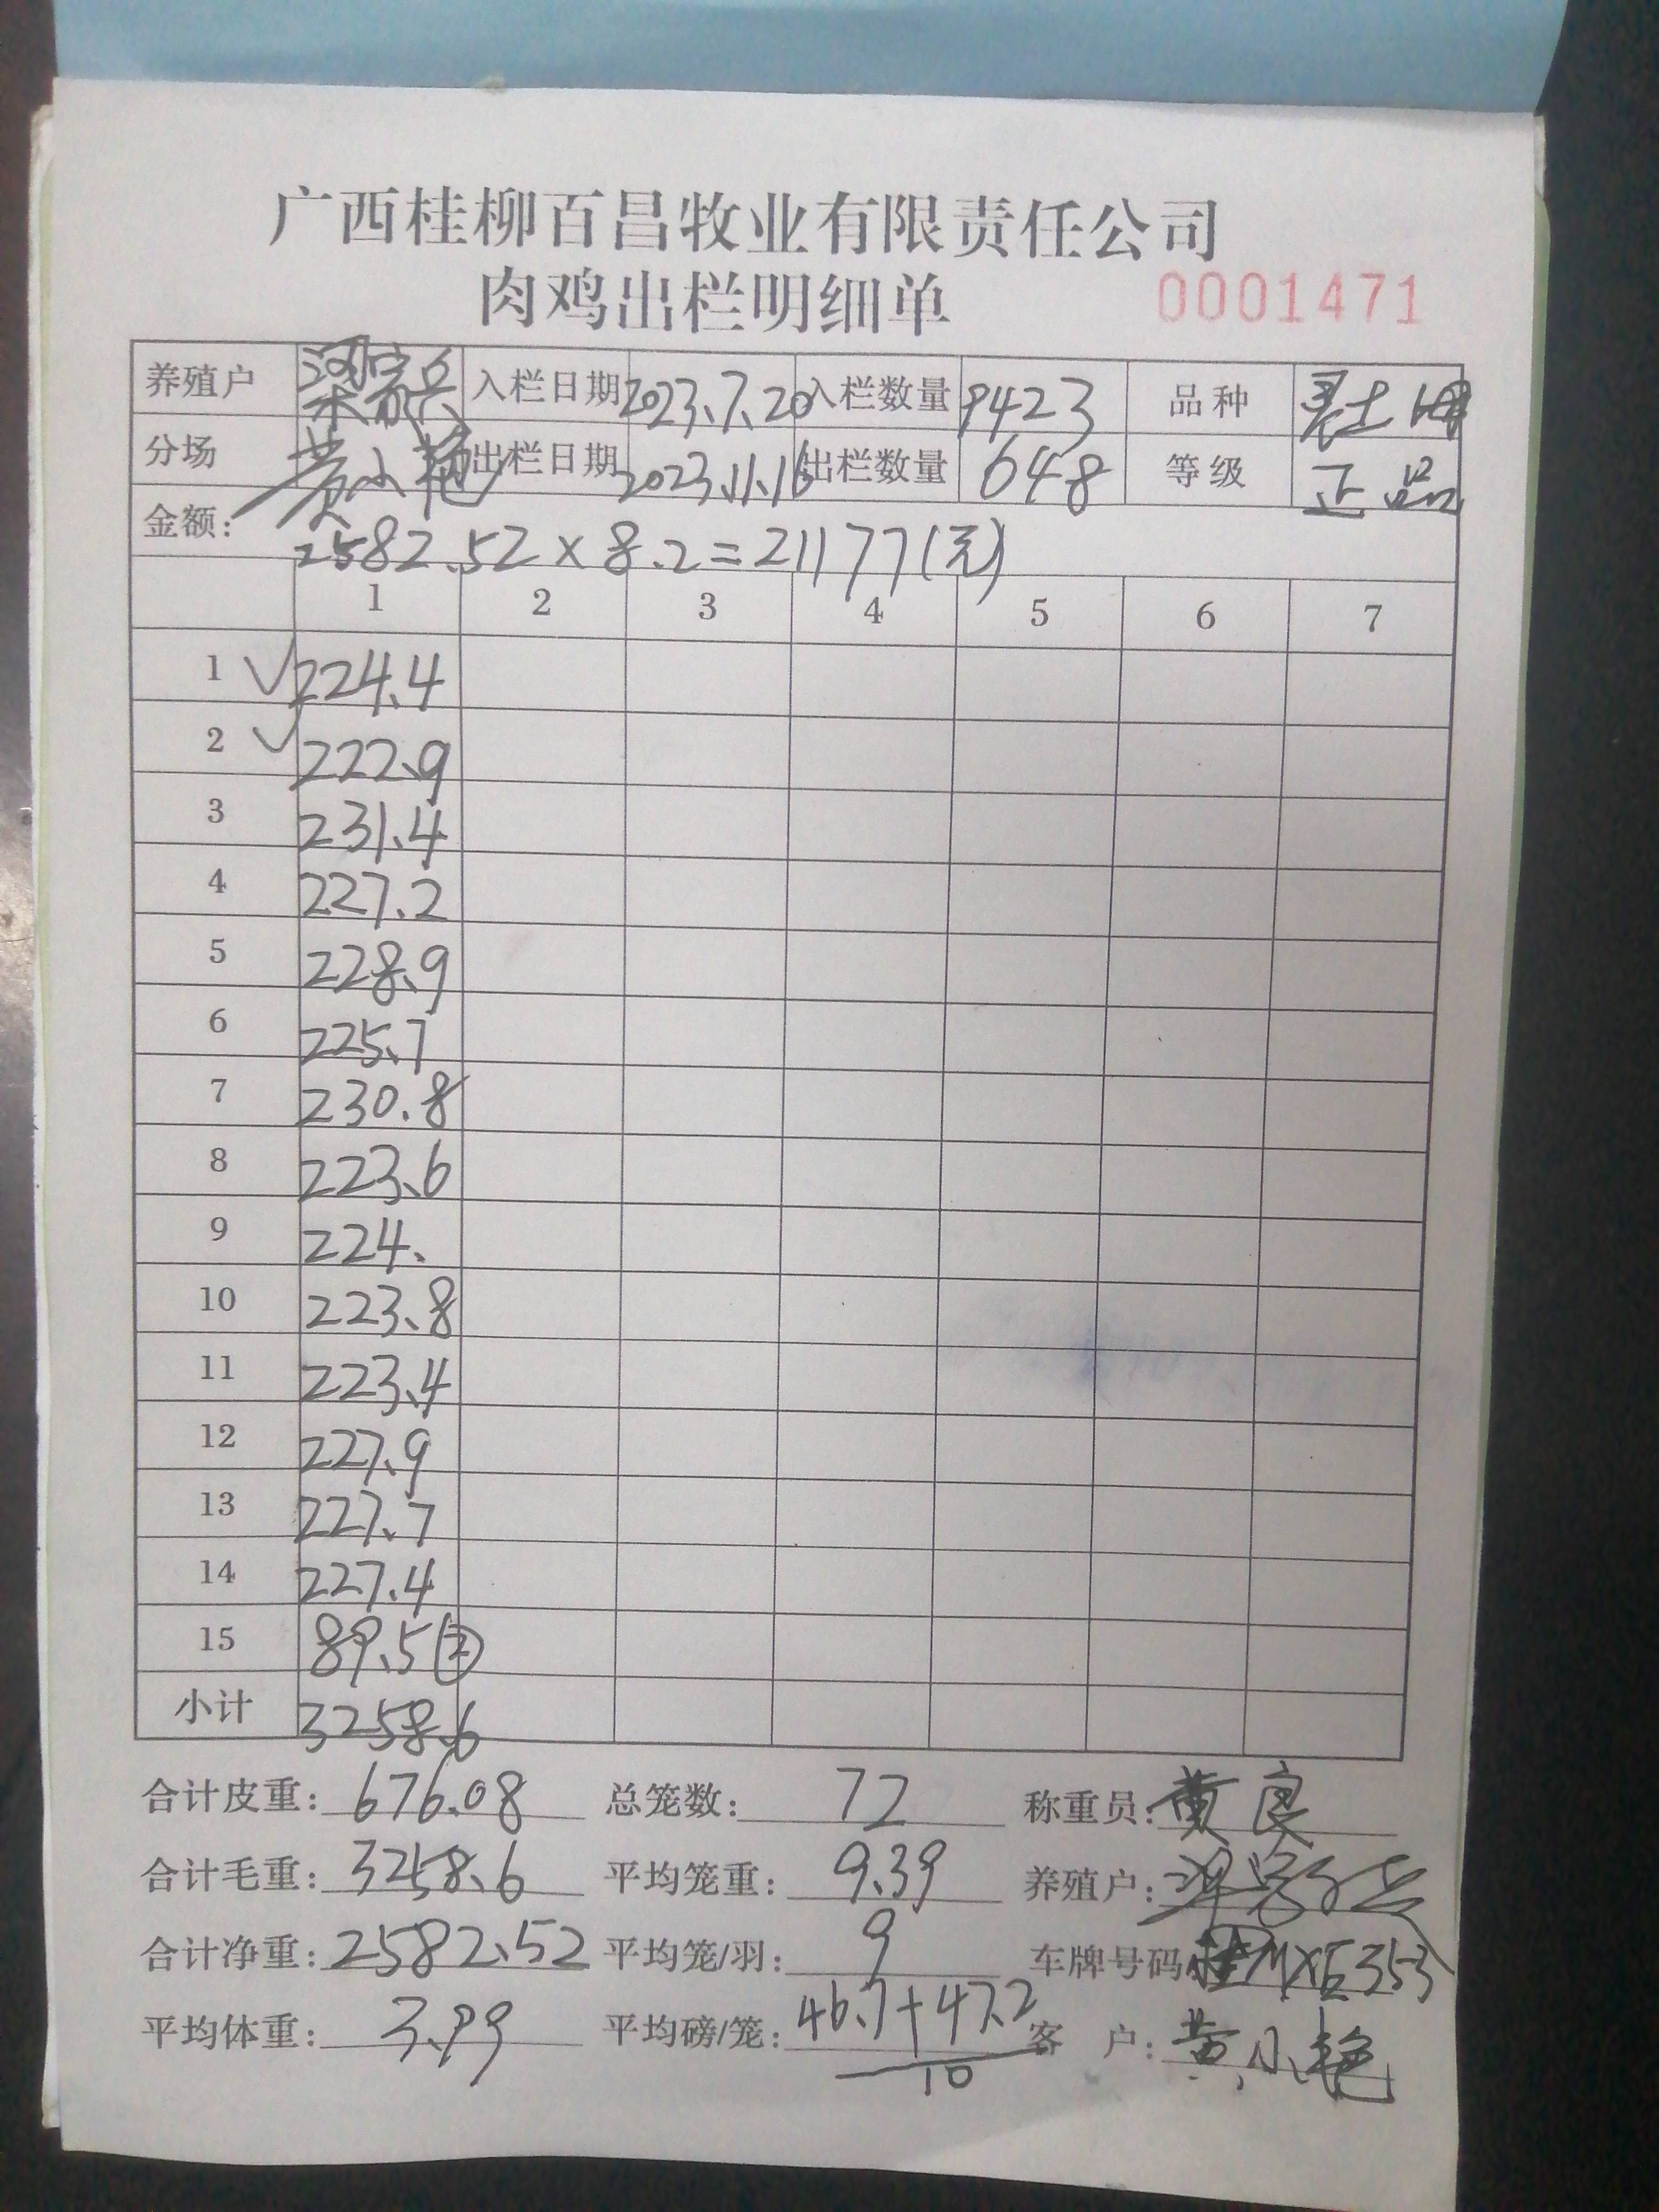 广西桂柳百昌牧业有限责任公司
肉鸡出栏明细单 0001471
养殖户 梁家兵 入栏日期 2023.7.20 入栏数量 9423 品种 土
分场 黄小艳 出栏日期 2023.11.16 出栏数量 648 等级 正品
金额: 2582.52×8.2=21177(元)
1 2 3 4 5 6 7
1 ✓ 224.4
2 ✓ 222.9
3 231.4
4 227.2
5 228.9
6 225.7
7 230.8
8 223.6
9 224.
10 223.8
11 223.4
12 227.9
13 227.7
14 227.4
15 89.5②
小计 3258.6
合计皮重: 676.08 总笼数: 72 称重员: 黄良
合计毛重: 3258.6 平均笼重: 9.39 养殖户: 梁家兵
合计净重: 2582.52 平均笼/羽: 9 车牌号码: 桂MXE353
平均体重: 3.99 平均磅/笼: 46.7+47.2 客 户: 黄小艳
10